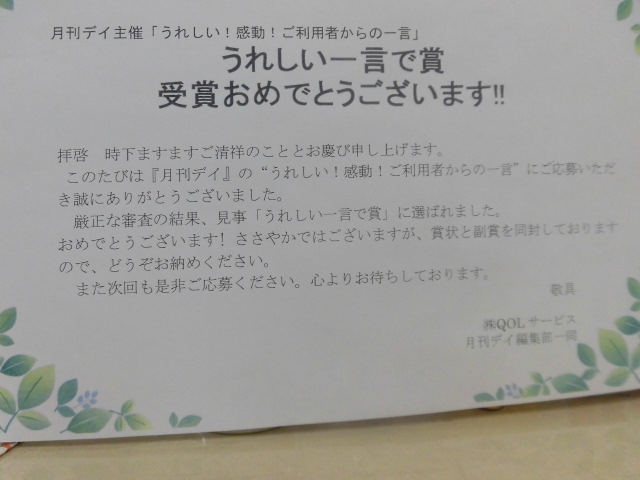 月刊デイ主催「うれしい！感動！ご利用者からの一言」
うれしい一言で賞
受賞おめでとうございます!!
拝啓　時下ますますご清祥のこととお慶び申し上げます。
このたびは『月刊デイ』の“うれしい！感動！ご利用者からの一言”にご応募いただ
き誠にありがとうございました。
厳正な審査の結果、見事「うれしい一言で賞」に選ばれました。
おめでとうございます! ささやかではございますが、賞状と副賞を同封しております
ので、どうぞお納めください。
また次回も是非ご応募ください。心よりお待ちしております。
敬具
㈱QOLサービス
月刊デイ編集部一同